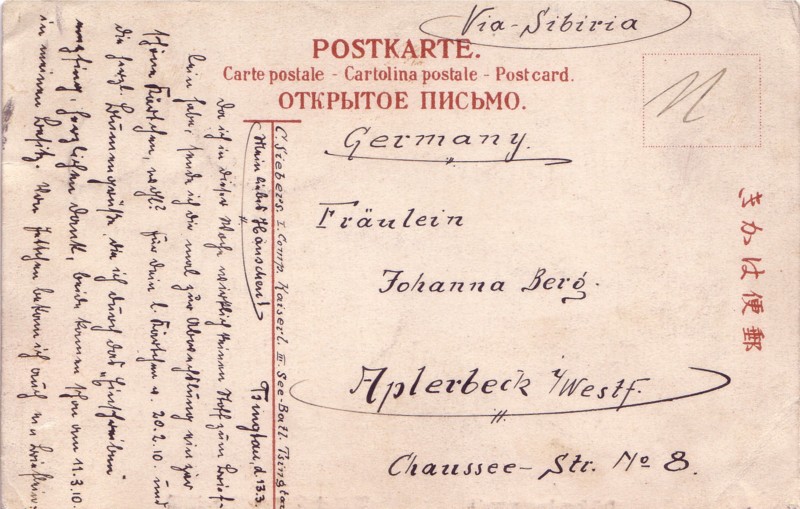 Via-Sibiria
POSTKARTE.
Carte postale - Cartolina postale - Post card.
ОТКРЫТОЕ ПИСЬМО.
Germany.
Fräulein
Johanna Berg.
Aplerbeck i/Westf.
Chaussee-Str. No 8.
きかは便郵
C. Siebers. I. Comp. Kaiserl. III. See-Batl. Tsingtau
Tsingtau, d. 13.3.
Mein liebes Hänschen!
Da ich in dieser Woche wirklich keinen Stoff zum
lein habe, sende ich dir mal zur Abwechslung ein
Kärtchen, nicht? Für Dein l. Kärtchen v. 20.2.10. und
die herzl. die ich durch das
empfing, herzlichen Dank, beide kamen schon am 11.3.10.
in meinen Besitz. Von bekam ich auch